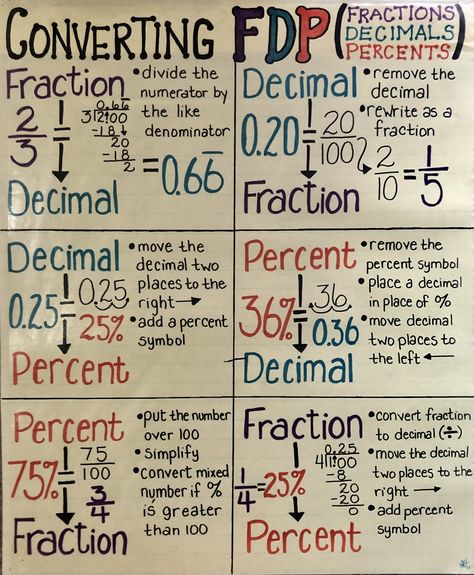 CONVERTING FDP (FRACTIONS
DECIMALS
PERCENTS)
Fraction
2/3 =
Decimal
0.66
3)2.00
-18
20
-18
2
= 0.66̅
• divide the
numerator by
the like
denominator
Decimal
0.20 = 20/100
2/10 = 1/5
Fraction
• remove the
decimal
• rewrite as a
fraction
Decimal
0.25 = 0.25
25%
Percent
• move the
decimal two
places to the
right →
• add a percent
symbol
Percent
36% = 36
0.36
Decimal
• remove the
percent symbol
• place a decimal
in place of %
• move decimal
two places to
the left ←
Percent
75% = 75/100
3/4
Fraction
• put the number
over 100
• Simplify
• convert mixed
number if %
is greater
than 100
Fraction
1/4 = 25%
0.25
4)1.00
-8
20
-20
0
Percent
• convert fraction
to decimal (÷)
• move the decimal
two places to the
right →
• add percent
symbol